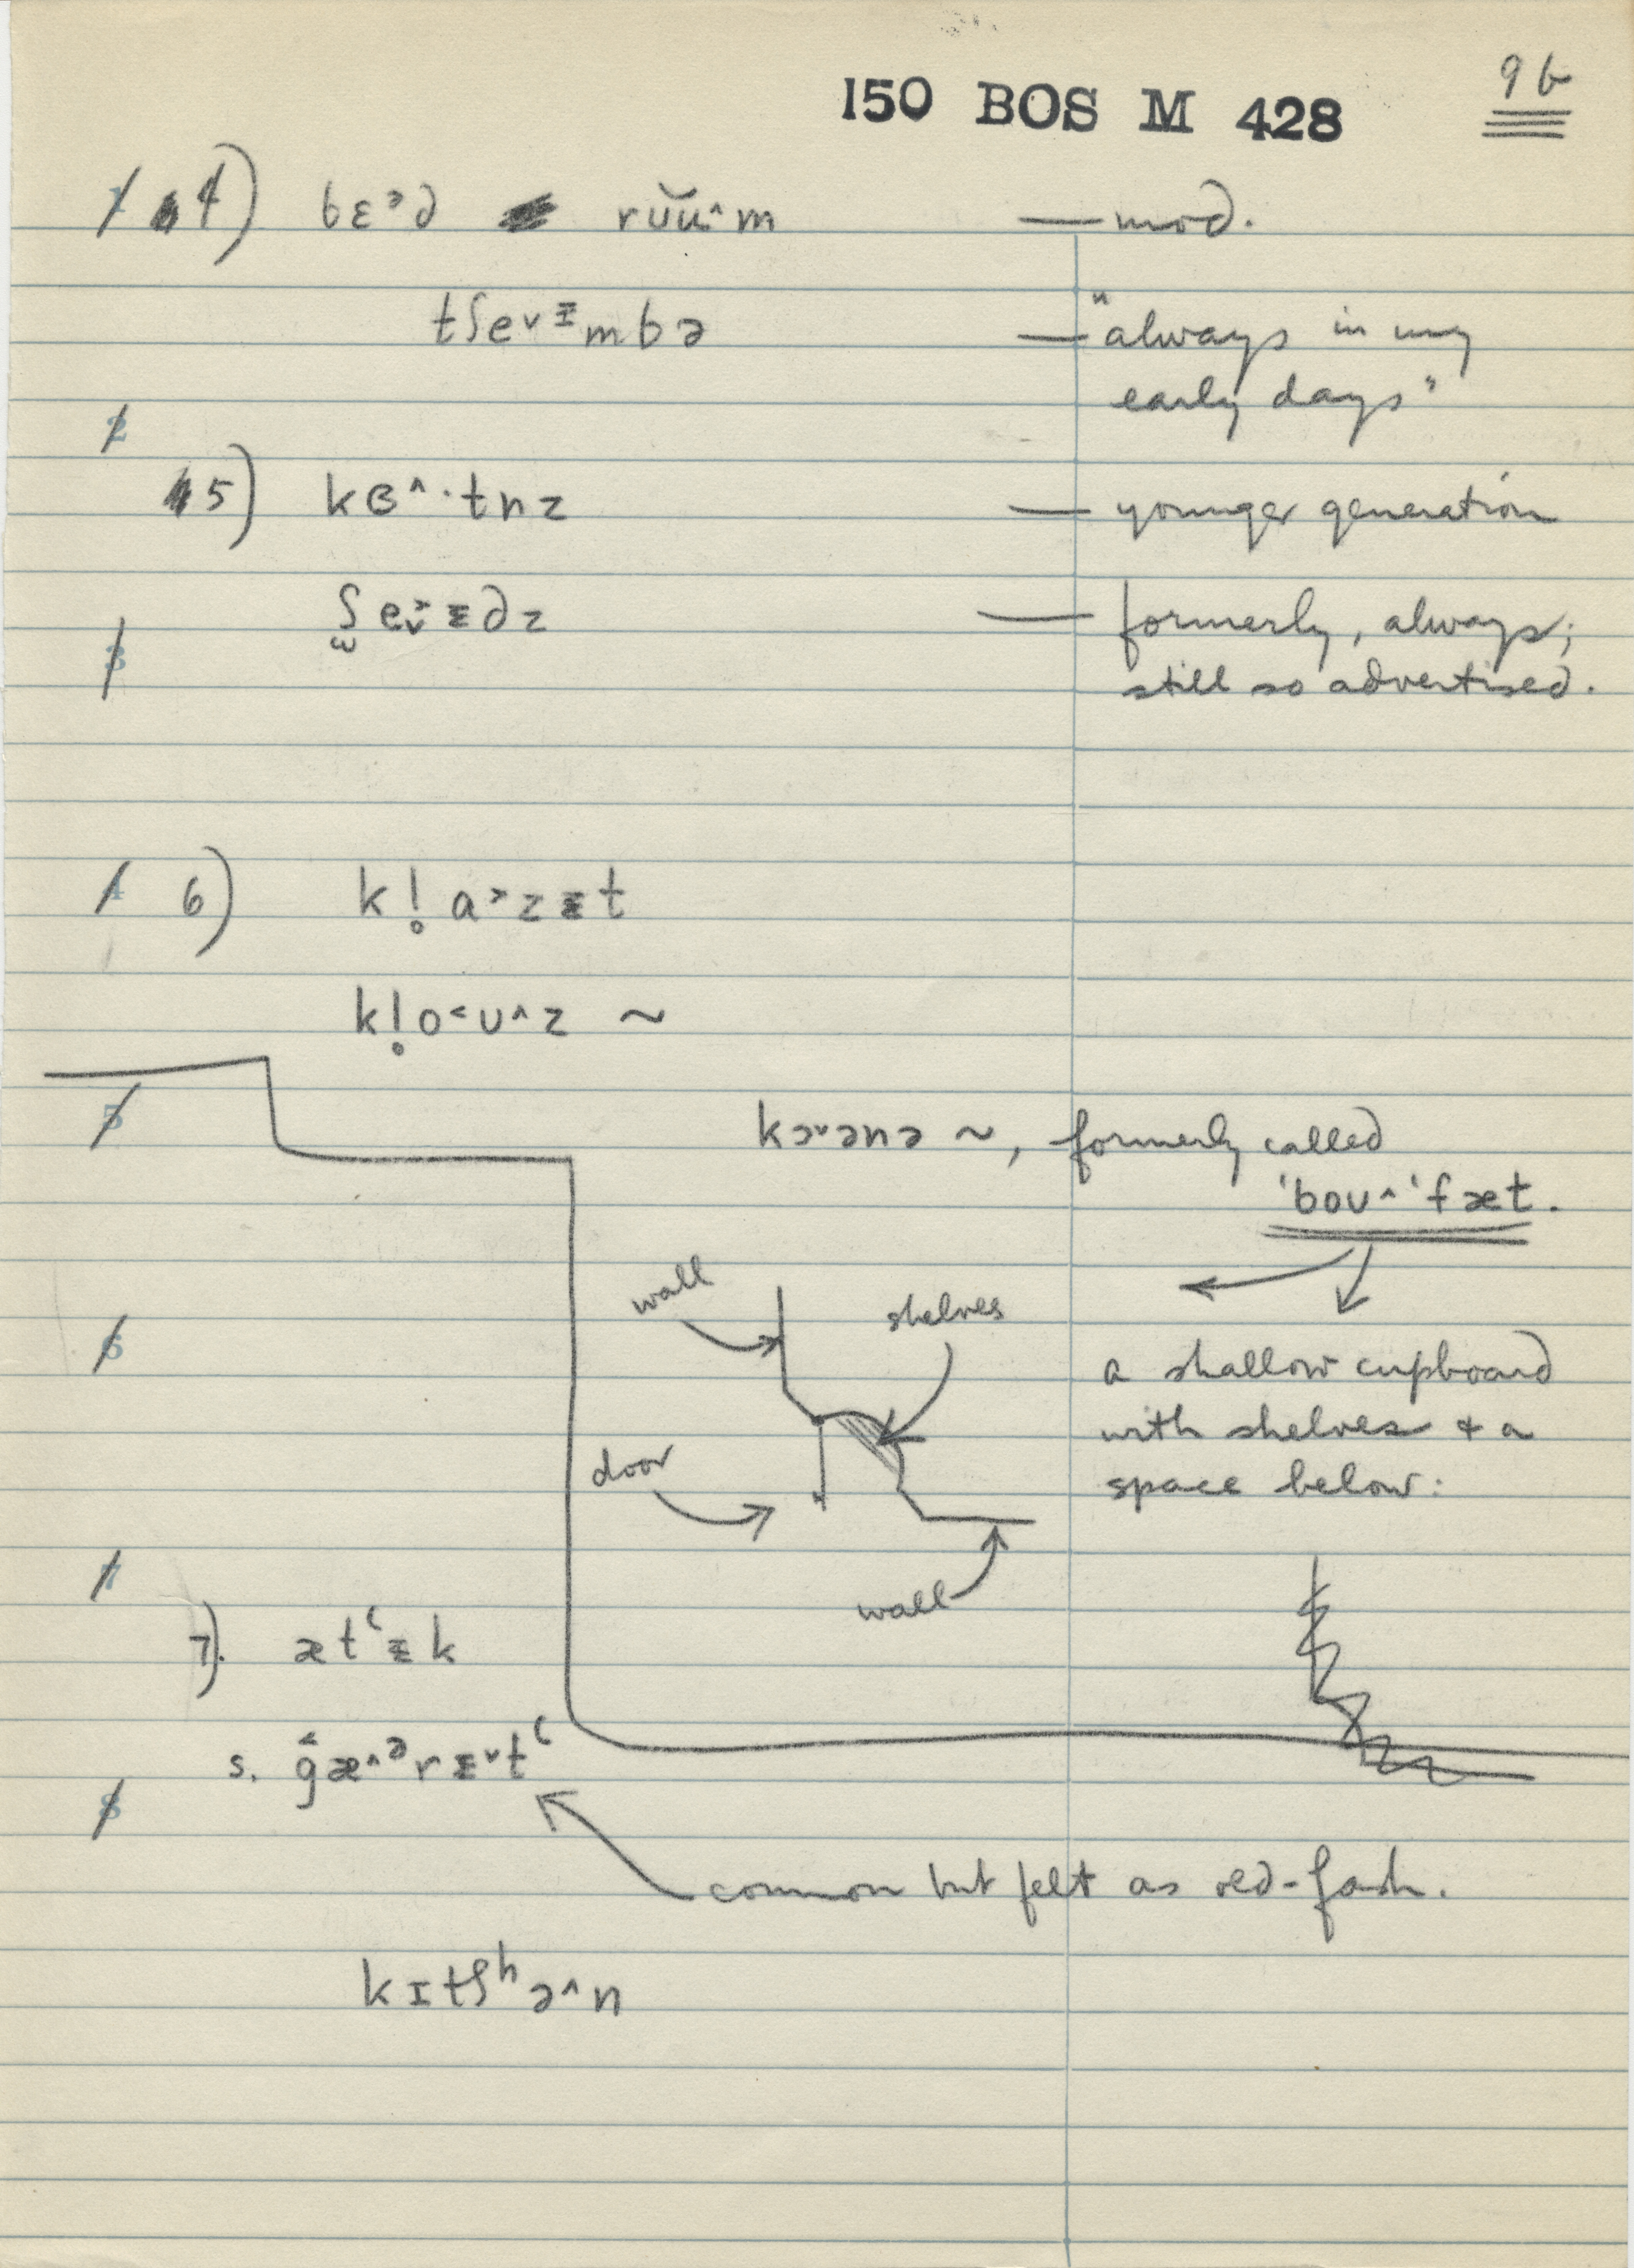 150 BOS M 428
9b
4) bɛᵊd rŭu^m — mod.
tʃe˅ɪ̵mbə — "always in my
early days"
5) kɞ^·tnz — younger generation
ʃ̫e˅˃ɪ̵dz — formerly, always;
still so advertised.
6) kl̥a˃zɪ̵t
kl̥o˂ʊ^z ~
kɔ˅ənə ~, formerly called
'boʊ^'fæt.
wall
shelves
a shallow cupboard
with shelves & a
space below:
door
wall
7). ætʻɪ̵k
s. ĝæ^ᵊrɪ̵˅tʻ
common but felt as old-fash.
kɪtʃʰə^n